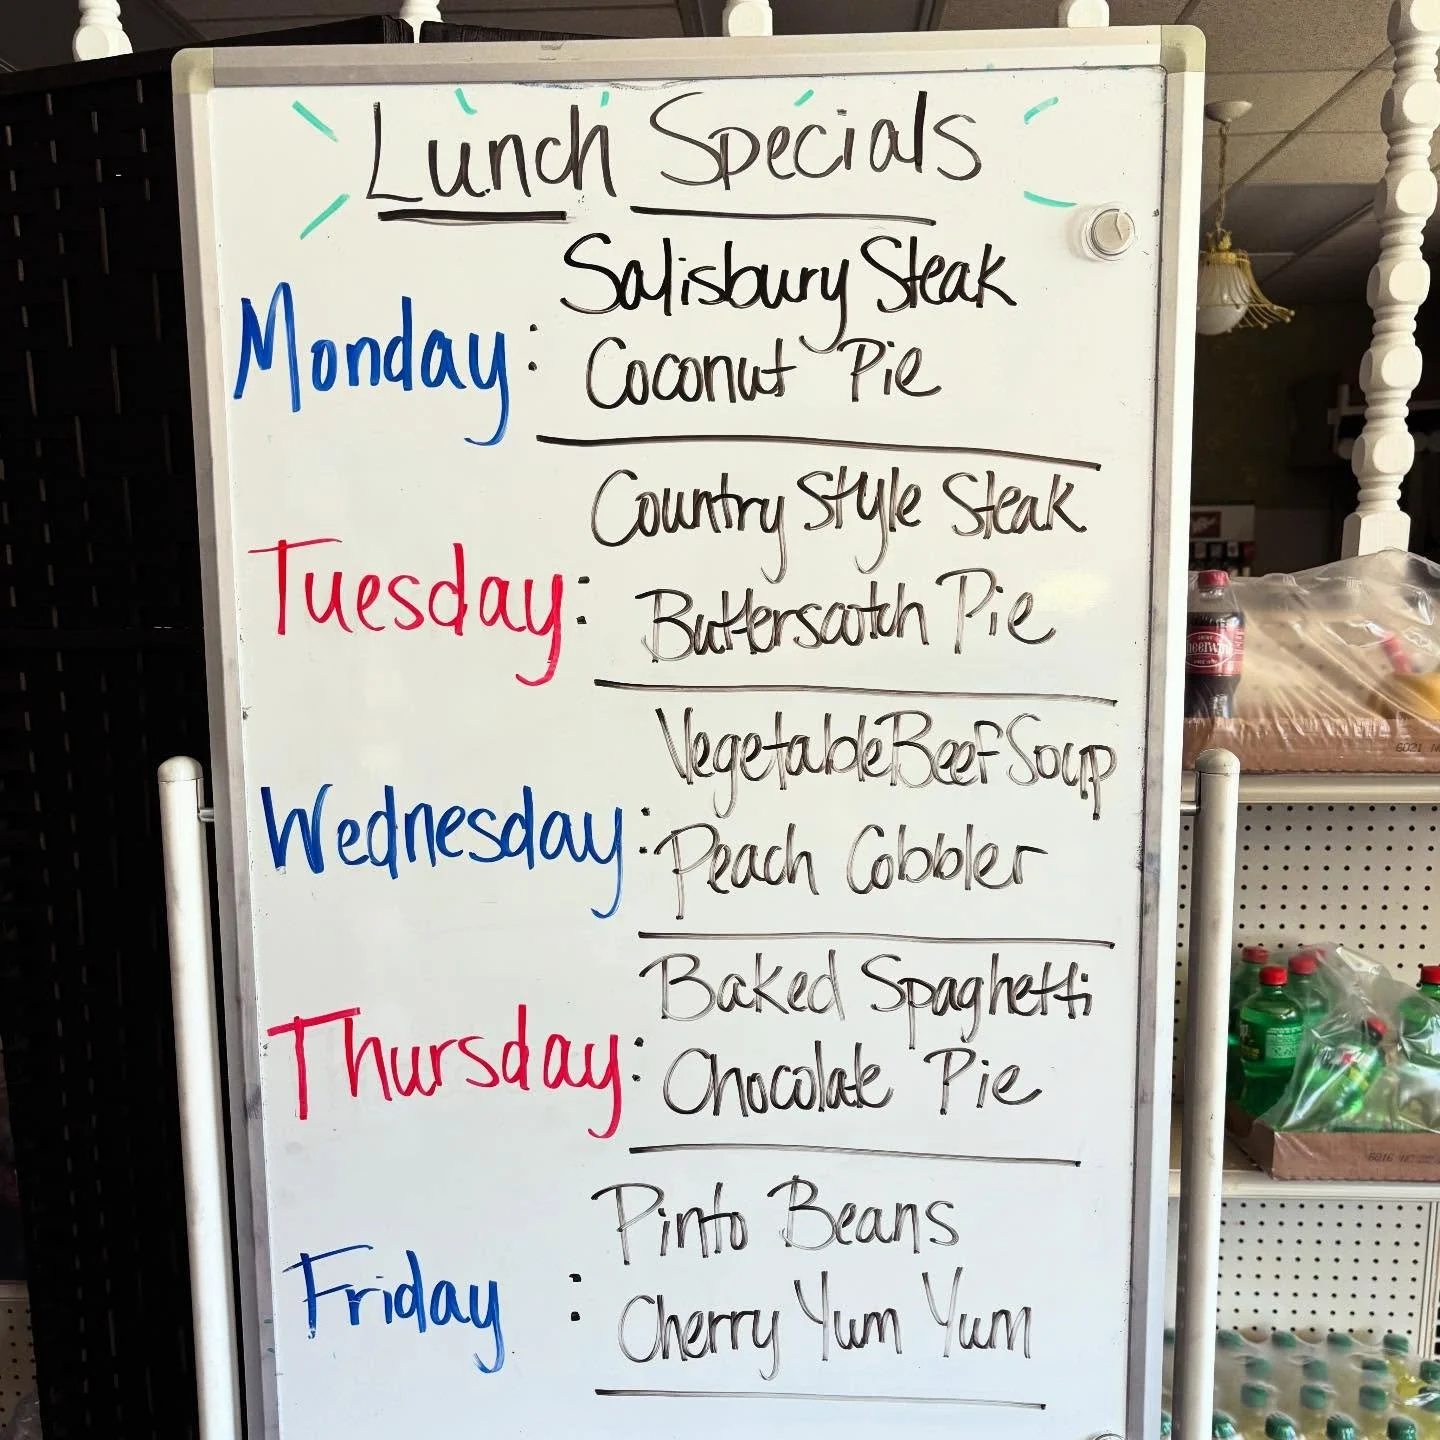 Lunch Specials
Monday:
Salisbury Steak
Coconut Pie
Tuesday:
Country Style Steak
Butterscotch Pie
Wednesday:
Vegetable Beef Soup
Peach Cobbler
Thursday:
Baked Spaghetti
Chocolate Pie
Friday:
Pinto Beans
Cherry Yum Yum